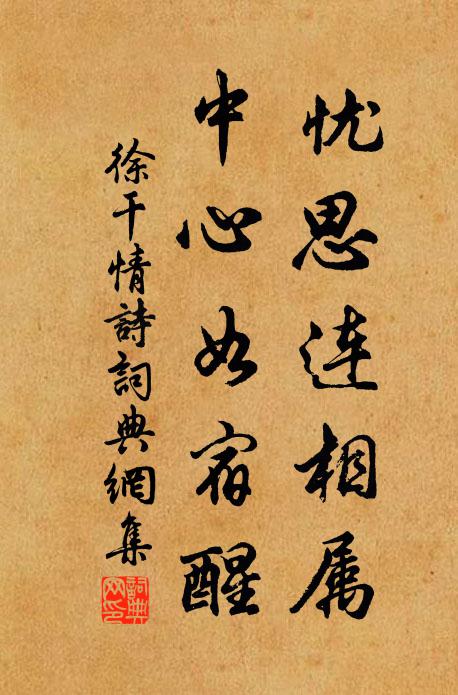 忧思连相属
中心如宿醒
徐干情詩詞典網集
詞典
网印